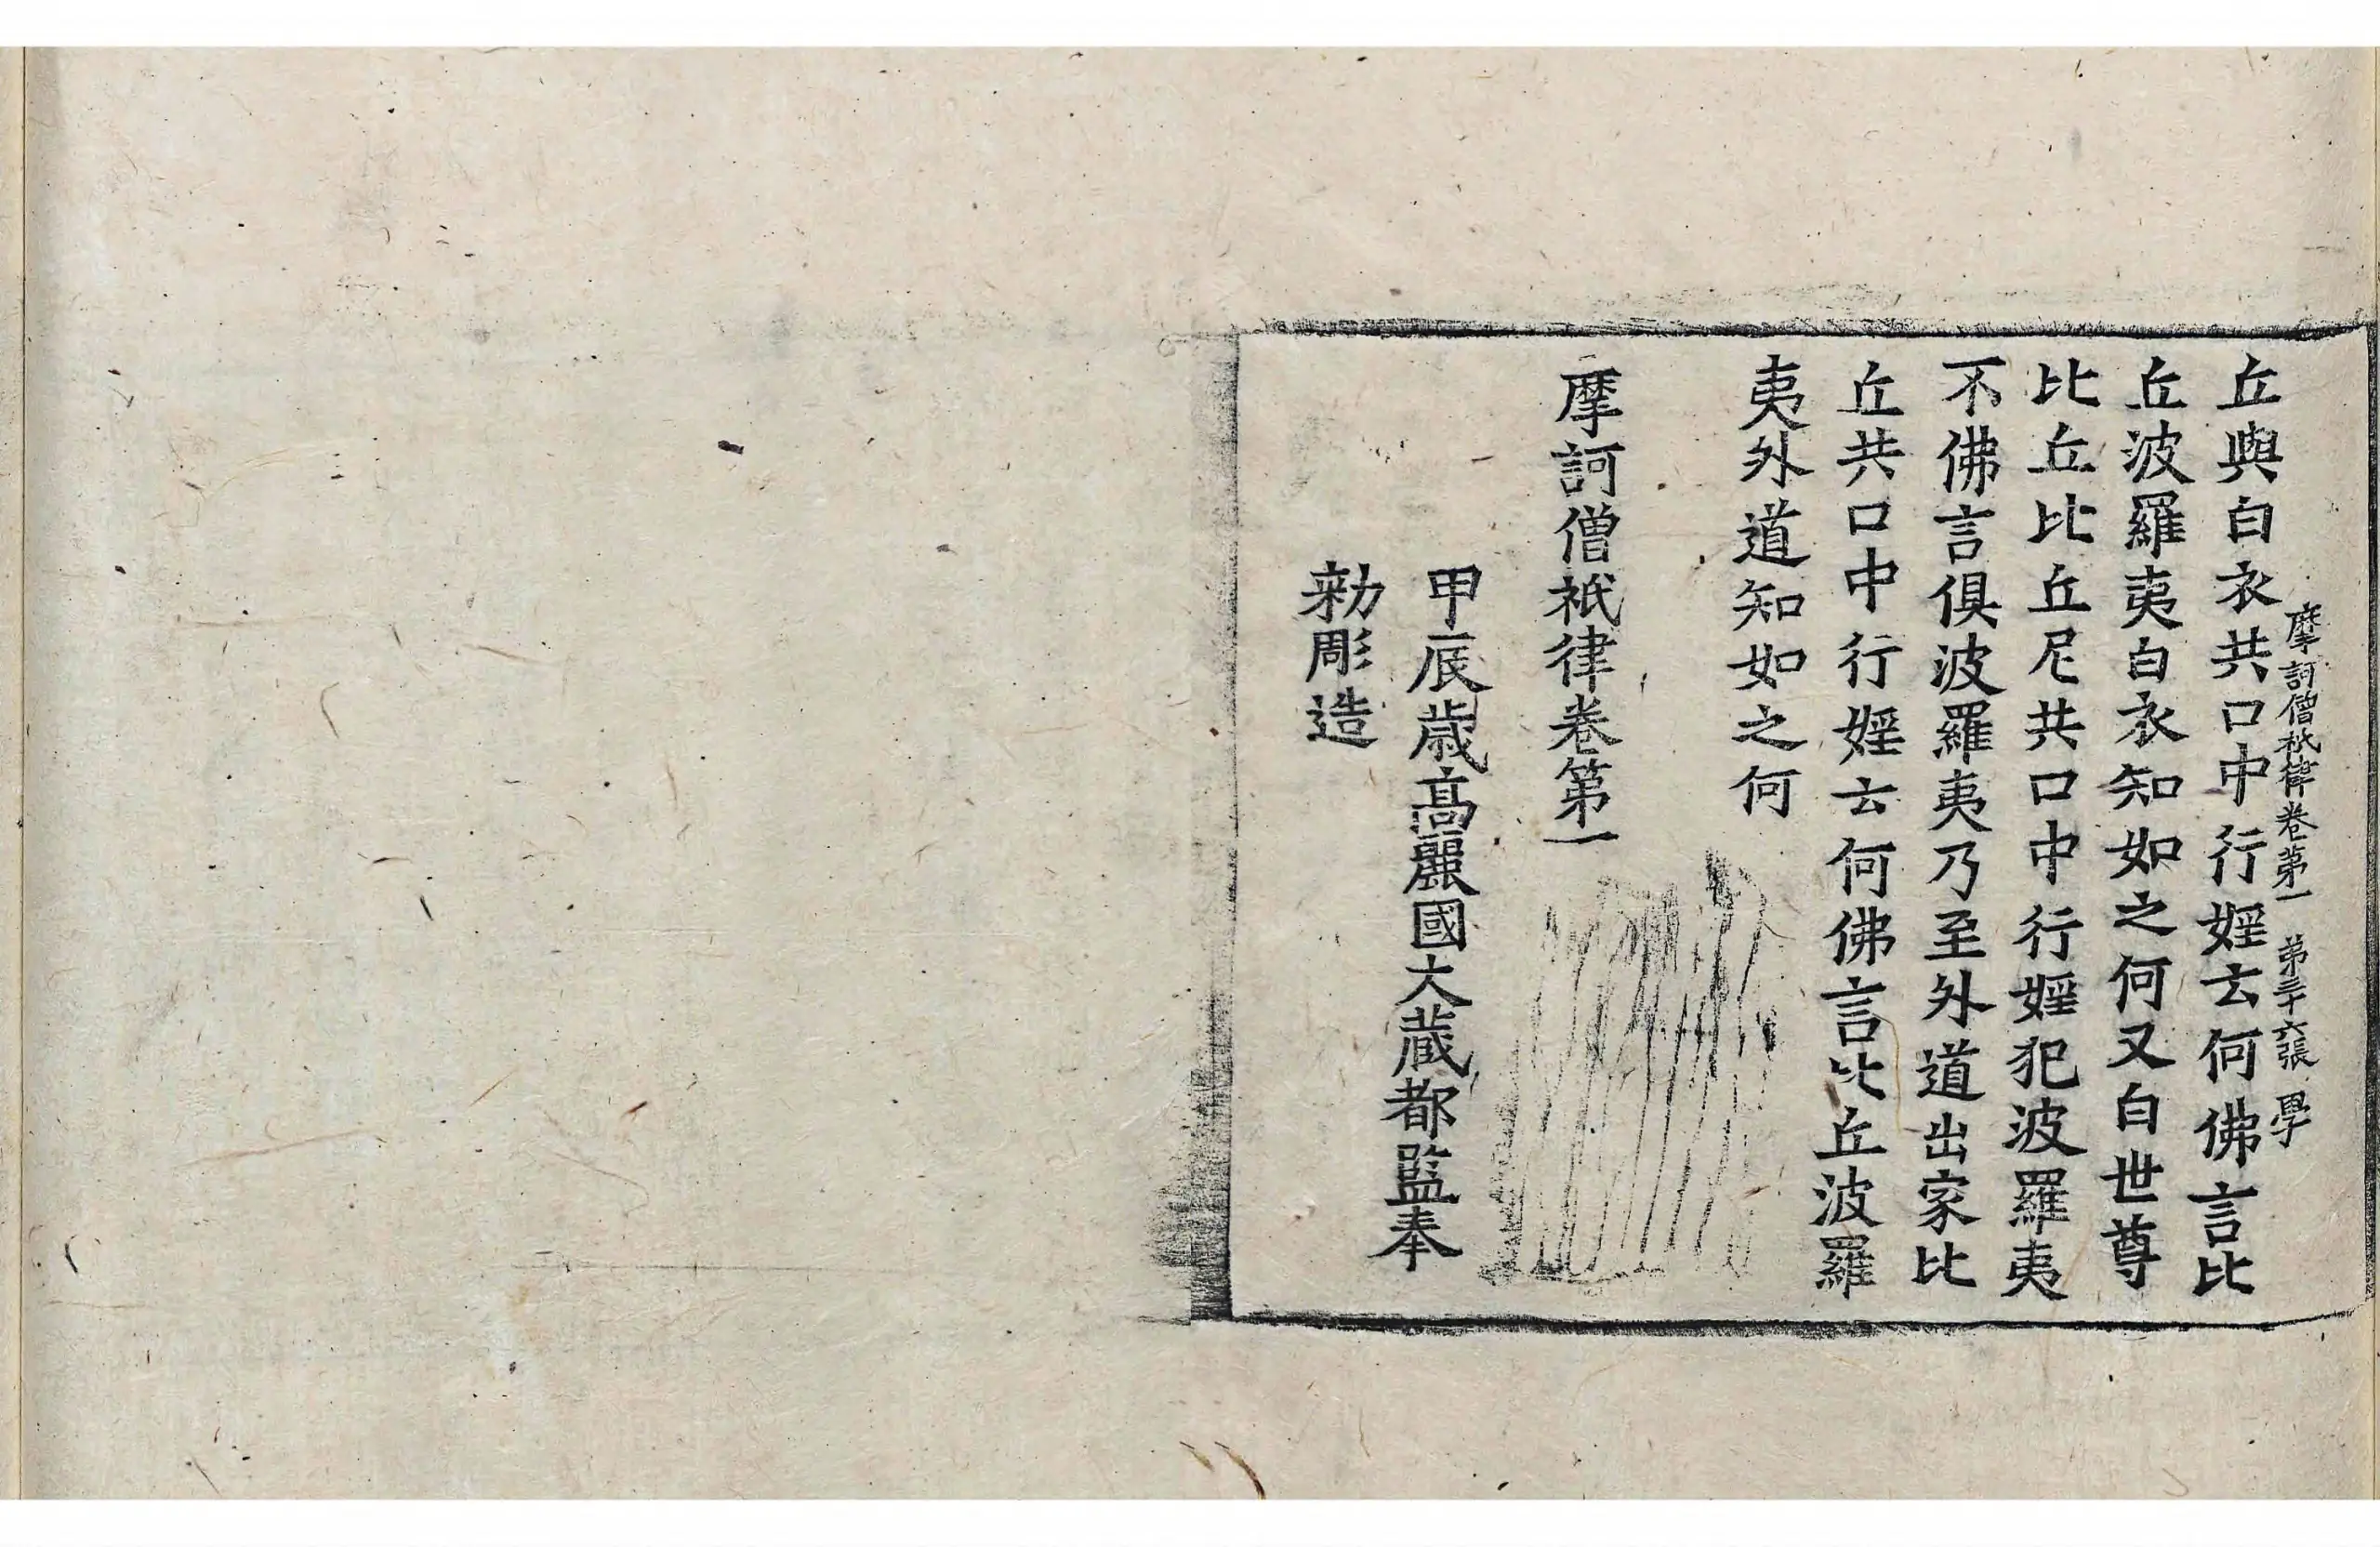 摩訶僧祇律卷第一 第三十六張 學
丘與白衣共口中行婬云何佛言比
丘波羅夷白衣知如之何又白世尊
比丘比丘尼共口中行婬犯波羅夷
不佛言俱波羅夷乃至外道出家比
丘共口中行婬云何佛言比丘波羅
夷外道知如之何
摩訶僧祇律卷第一
甲辰歳髙麗國大藏都監奉
勑彫造